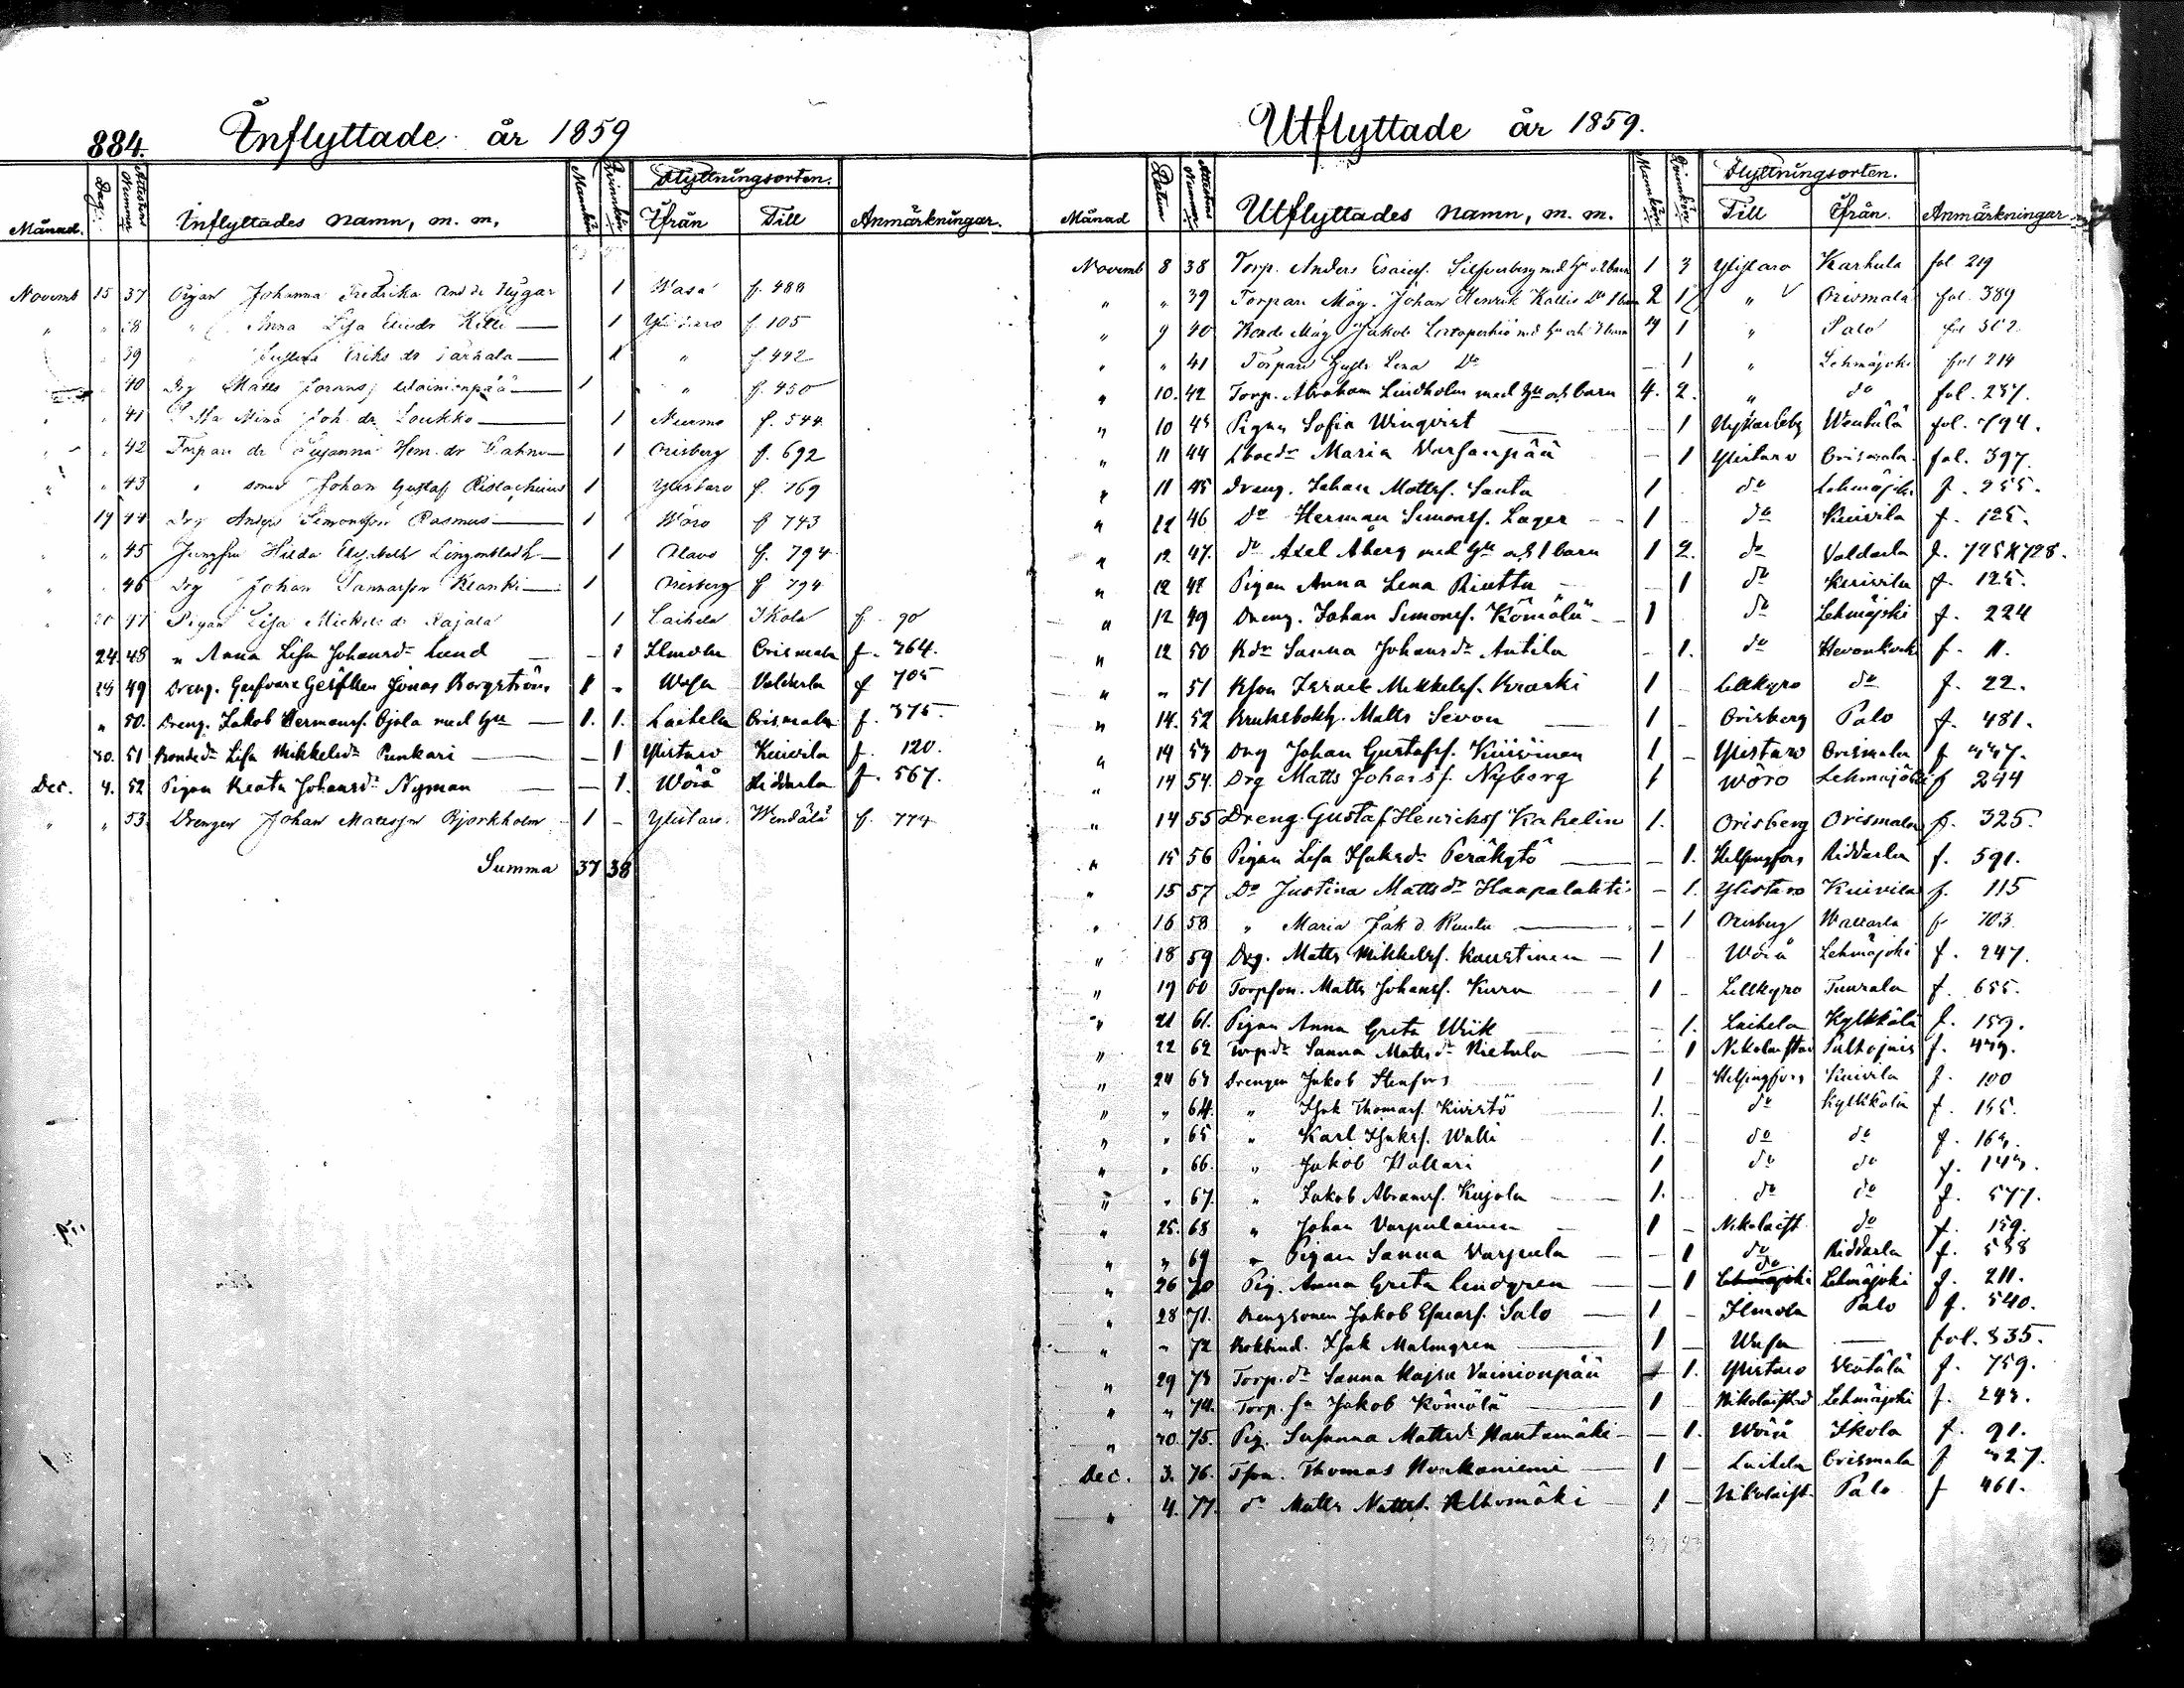 884.
Inflyttade år 1859
Månad. Dag. Attestens Nummer Inflyttades namn, m. m. Mankön Qvinkön Flyttningsorten. Ifrån Till Anmärkningar.
Novemb 15 37 Pigan Johanna Fredrika And dr Nygar 1 Wasa f. 488
" " 38 " Anna Lisa 1 Ylistaro f. 105
" 39 " Eriks dr 1 " f. 442
" 40 Drg Matts Wainionpää 1 " f. 450
" " 41 Mina Joh. dr Loukko 1 Nurmo f. 544
" " 42 Torpare dr Susanna Hem. dr 1 Orisberg f. 692
" " 43 " sonen Johan Gustaf 1 Ylistaro f. 769
" 19 44 Drg Anders Simonsson Rasmus 1 Wöro f 743
" " 45 Jungfru Hilda Lingonbladh 1 Alavo f. 794
" 46 Drg Johan Klanki 1 Orisberg f 794
47 Pigan Lisa Mickels dr Rajala 1 Laihela Ikola f. 90
24. 48 " Anna Lisa Johansdr Lund 1 Ilmola Orismala f. 764.
28 49 Dreng. Jonas Borgström 1 " Wasa Valdarla f 705
" 50. Dreng. Jakob Hermansf. Ojala med hu 1. 1. Laihela Orismala f. 375.
30. 51 Bondedr Lisa Mikkelsdr Punkari 1 Ylistaro Kuivila f. 120.
Dec. 4. 52 Pigan Johansdr Nyman 1. Wörå Riddarla f. 567.
" " 53. Drengen Johan Mattsson Björkholm 1 Ylistaro. Wendälä f. 774
Summa 37 38
Utflyttade år 1859.
Månad Datum Attestens Nummer Utflyttades namn, m. m. Mankön Qvinkön Flyttningsorten. Till Ifrån. Anmärkningar
Novemb 8 38 Torp. Anders Esaiasf. Silfverberg med hu o. 2 barn 1 3 Ylistaro Karhula fol 219
" " 39 Torpare Måg. Johan Henrik Kallis Do 1 barn 2 1 " Orismala fol. 389
" 9 40 Bonde Måg Jakob med hu och 3 barn 4 1 " Palo fol 502
" " 41 Torpare Lena Do 1 " Lehmäjoki fol 214
" 10. 42 Torp. Abraham Lindholm med hu och barn 4. 2. " do fol. 237.
" 10 43 Pigan Sofia Winqvist 1 Nykarleby Wentälä fol. 794.
" 11 44 Maria Varsanpää 1 Ylistaro Orismala fol. 397.
" 11 45 Dreng. Johan Mattsf. Santa 1 do Lehmäjoki f. 255.
" 12 46 Do Herman Simonsf. Lager 1 do Kuivila f. 125.
" 12. 47. do Axel Åberg med hu och 1 barn 1 2. do Valdarla f. 725 & 728.
" 12 48 Pigan Anna Lena Riutta 1 do Kuivila f. 125.
" 12 49 Dreng. Johan Simonsf. Kömölä 1 do Lehmäjoki f. 224
" 12 50 Sanna Johansdr Antila 1. do f. 11.
" " 51 Mikkelsf. 1 Lillkyro do f. 22.
" 14. 52 Matts Sevon 1 Orisberg Palo f. 481.
" 14 53 Drg Johan Gustafsf. 1 Ylistaro Orismala f 337.
" 14 54. Drg Matts Johansf. Nyborg 1 Wöro Lehmajöki f 244
" 14 55 Dreng. Gustaf Henriksf Kakelin 1. Orisberg Orismala f. 325.
" 15 56 Pigan Lisa Isaksdr Peräkytö 1. Helsingfors Riddarla f. 591.
" 15 57 Do Justina Mattsdr Haapalahti 1. Ylistaro Kuivila f. 115
" 16 58 " Maria Jak d. Ruutu 1 Orisberg Wallarla f 703
" 18 59 Drg. Matts Mikkelsf. Kaustinen 1 Wörå Lehmäjoki f. 247.
" 19 60 Torpson. Matts Johansf. Kura 1 Lillkyro Tuurala f. 655.
" 21 61. Pigan Anna Greta Wiik 1. Laihela Kylkkälä f. 159.
" 22 62 Torpdr Sanna Mattsdr Rietula 1 Nikolaistad f. 479.
" 24 63 Drengen Jakob Stenfors 1 Helsingfors Kuivila f. 100
" " 64. " Isak Thomasf. Kivistö 1. do Kylkkälä f. 155.
" " 65 " Karl Isaksf. Walli 1. do do f. 163.
" " 66. " Jakob Hallari 1 do do f. 143.
" " 67. " Jakob Abramsf. Kujola 1. do do f. 577.
" 25. 68 " Johan Varpulainen 1 Nikolaist. do f. 159.
" " 69 " Pigan Sanna Varpula 1 do Riddarla f. 538
" 26 70 Pig. Anna Greta Lindgren 1 do Lehmäjoki f. 211.
" 28 71. Drengsonen Jakob Esaiasf. Salo 1 Ilmola Palo f. 540.
" " 72 Bokbind. Isak Malmgren 1 Wasa fol. 835.
" 29 73 Torp.dr Sanna Kajsa Vainionpää 1. Ylistaro Wentälä f. 759.
" " 74. Torp. sn Jakob Kömölä 1 Nikolaistad Lehmäjoki f. 243.
" 30. 75. Pig. Susanna Mattsdr Hautamäki 1. Wörå Ikola f. 91.
Dec. 3. 76. Thomas Koukaniemi 1 Laihela Orismala f 327.
" 4. 77. do Matts Mattsf. Alhomäki 1 Nikolaist. Palo f 461.